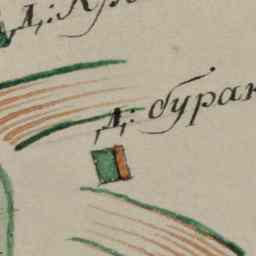 Д: Кр
Д: бурак